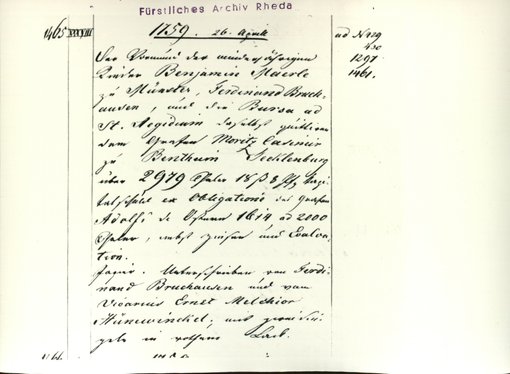 Fürstliches Archiv Rheda
1465
1759. 26. April
ad N 929
430
1297
1461.
Der Vormund der minderjährigen
Kinder Benjamin Maerle
zu Münster, Ferdinand Bruch-
ausen, und die Bursa ad
St. Aegidium daselbst quittiren
dem Grafen Moritz Casimir
zu Bentheim Tecklenburg
über 2979 Thaler 18 ß 8 Pf
ex Obligationis des Grafen
Adolf de Ostern 1614 ad 2000
Thaler, nebst Zinsen und Evalva-
tion.
Papier. Unterschrieben von Ferdi-
nand Bruchausen und vom
Vicarius Ernst Melchior
Münewinckel, mit zwei Sie-
geln in rothem Lack.